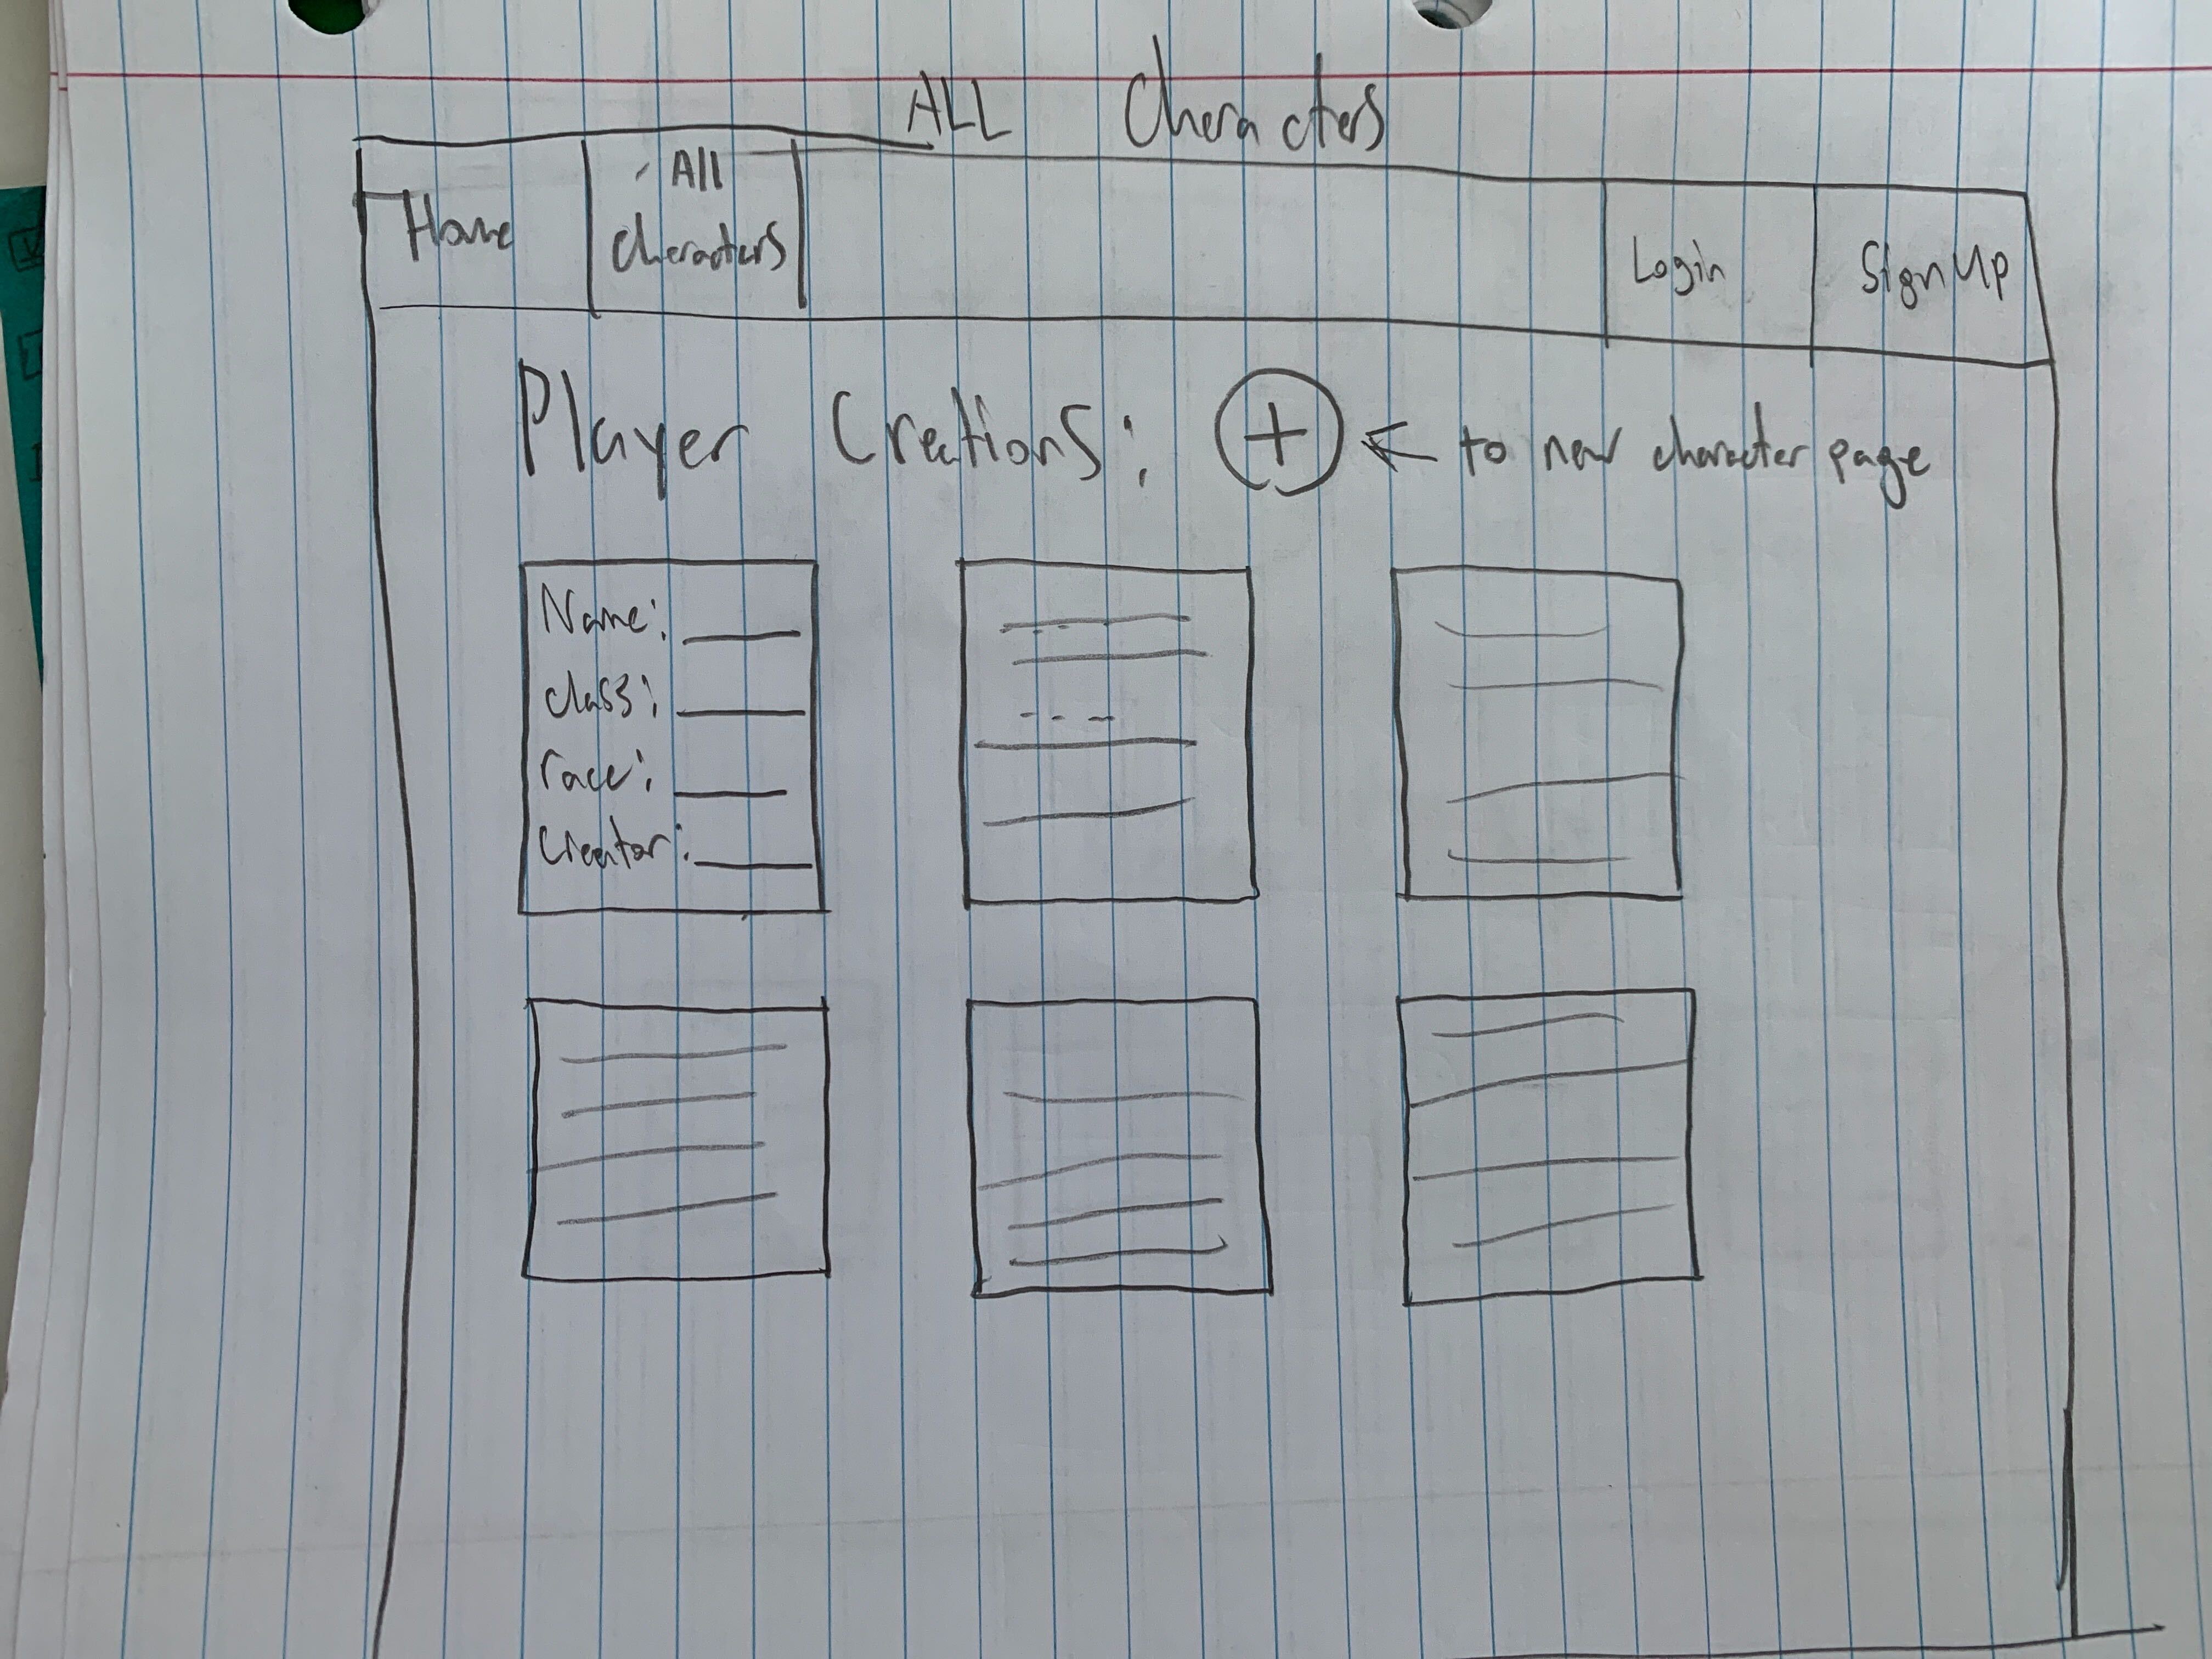 ALL Characters
Home
All
Characters
Login
SignUp
Player Creations: + ← to new character page
Name:
class:
race:
Creator: